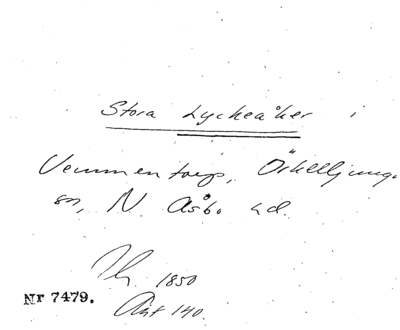 Stora Lyckeåker i
Vemmentorp, Örkelljunga
sn, N. Åsbo hd.
1850
Nr 7479. Akt 140.